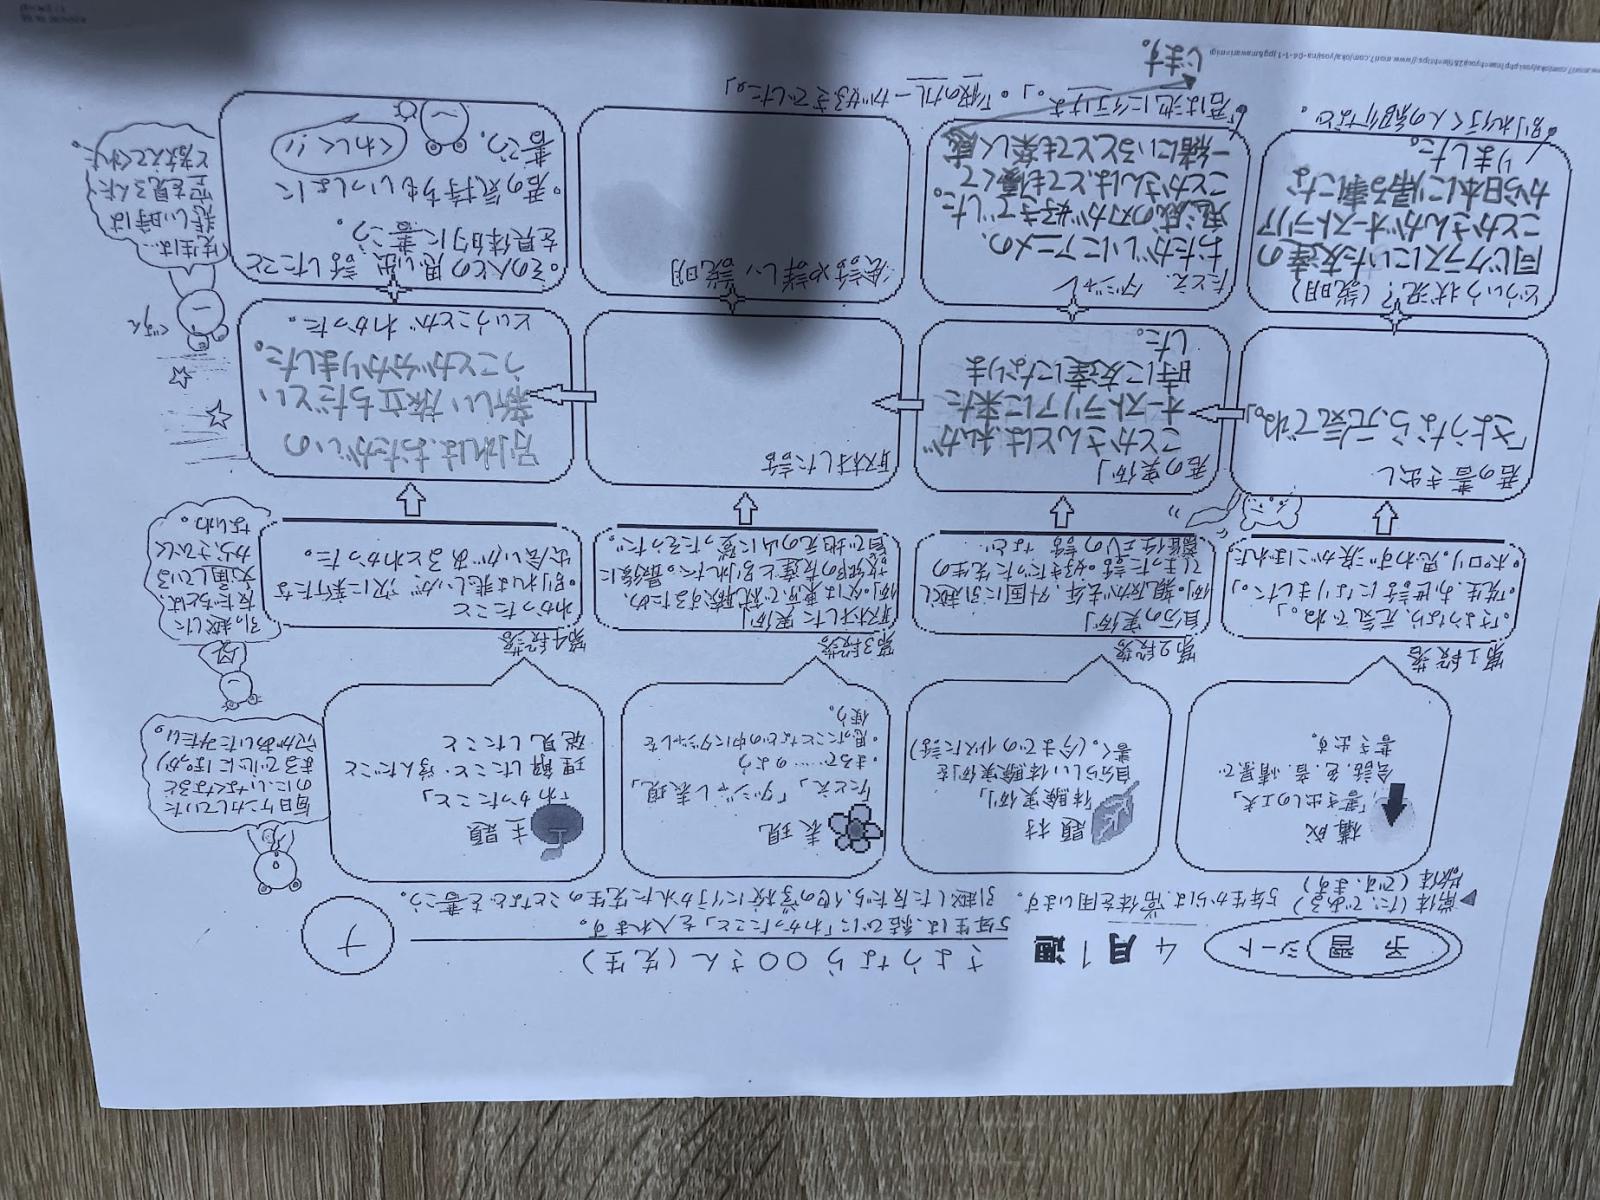 予習シート
4月1週
さようなら○○さん(先生)
ナ
5年生は、結びに「わかったこと」を入れます。
▶常体(だ、である) 5年生からは、常体を用います。
敬体(です、ます)
引越した友だちや、他の学校に行かれた先生のことなどを書こう。
構成
「書き出しの工夫」
会話、色、音、情景で
書き出す。
題材
「体験実例」
自分らしい体験実例を
書く。(今までの
表現
「たとえ」「ダジャレ表現」
・まるで……のよう
・思ったことなどの中にダジャレを
使う。
主題
「わかったこと」
理解したこと・学んだこと
発見したこと
毎日ケンカしていた
のに、いなくなると
まるで心にぽっかり
穴があいたみたい。
第1段落
・「さようなら、元気でね。」
・「先生、お世話になりました。」
・ポロリ。思わず涙がこぼれた
第2段落
自分の実例」
例。親友が去年、外国に引越し
てしまった話。好きだった先生の
離任式の話 など
第3段落
取材した実例」
例。父は東京で就職するため、
故郷の友達と別れた。最後に
皆で地元の山に登ったそうだ。
第4段落
わかったこと
・別れは悲しいが、次に新たな
出会いがあるとわかった。
引っ越した
友だちとは、
文通している
から、さびしく
ないわ。
君の書き出し
「さようなら、元気でね。」
君の実例」
ことかさんとは、私が
オーストラリアに来た
時に友達になりま
した。
取材した話
別れはおたがいの
新しい旅立ちだとい
うことが分かりました。
ということがわかった。
ぐすん
どういう状況?(説明)
同じクラスにいた友達の
ことかさんがオーストラリア
から日本に帰る事にな
りました。
別れ行く人の紹介など
たとえ、ダジャレ
おたがいにアニメの、
鬼滅の刃が好きでした。
ことかさんは、とても優しくて
一緒にいるととても楽しく感
じます。
会話や詳しい説明
・その人との思い出、話したこと
を具体的に書こう。
・君の気持ちもいっしょに
書こう。
くわしく!!
先生は…
悲しい時は
空を見るんだ
と教えてくれた。